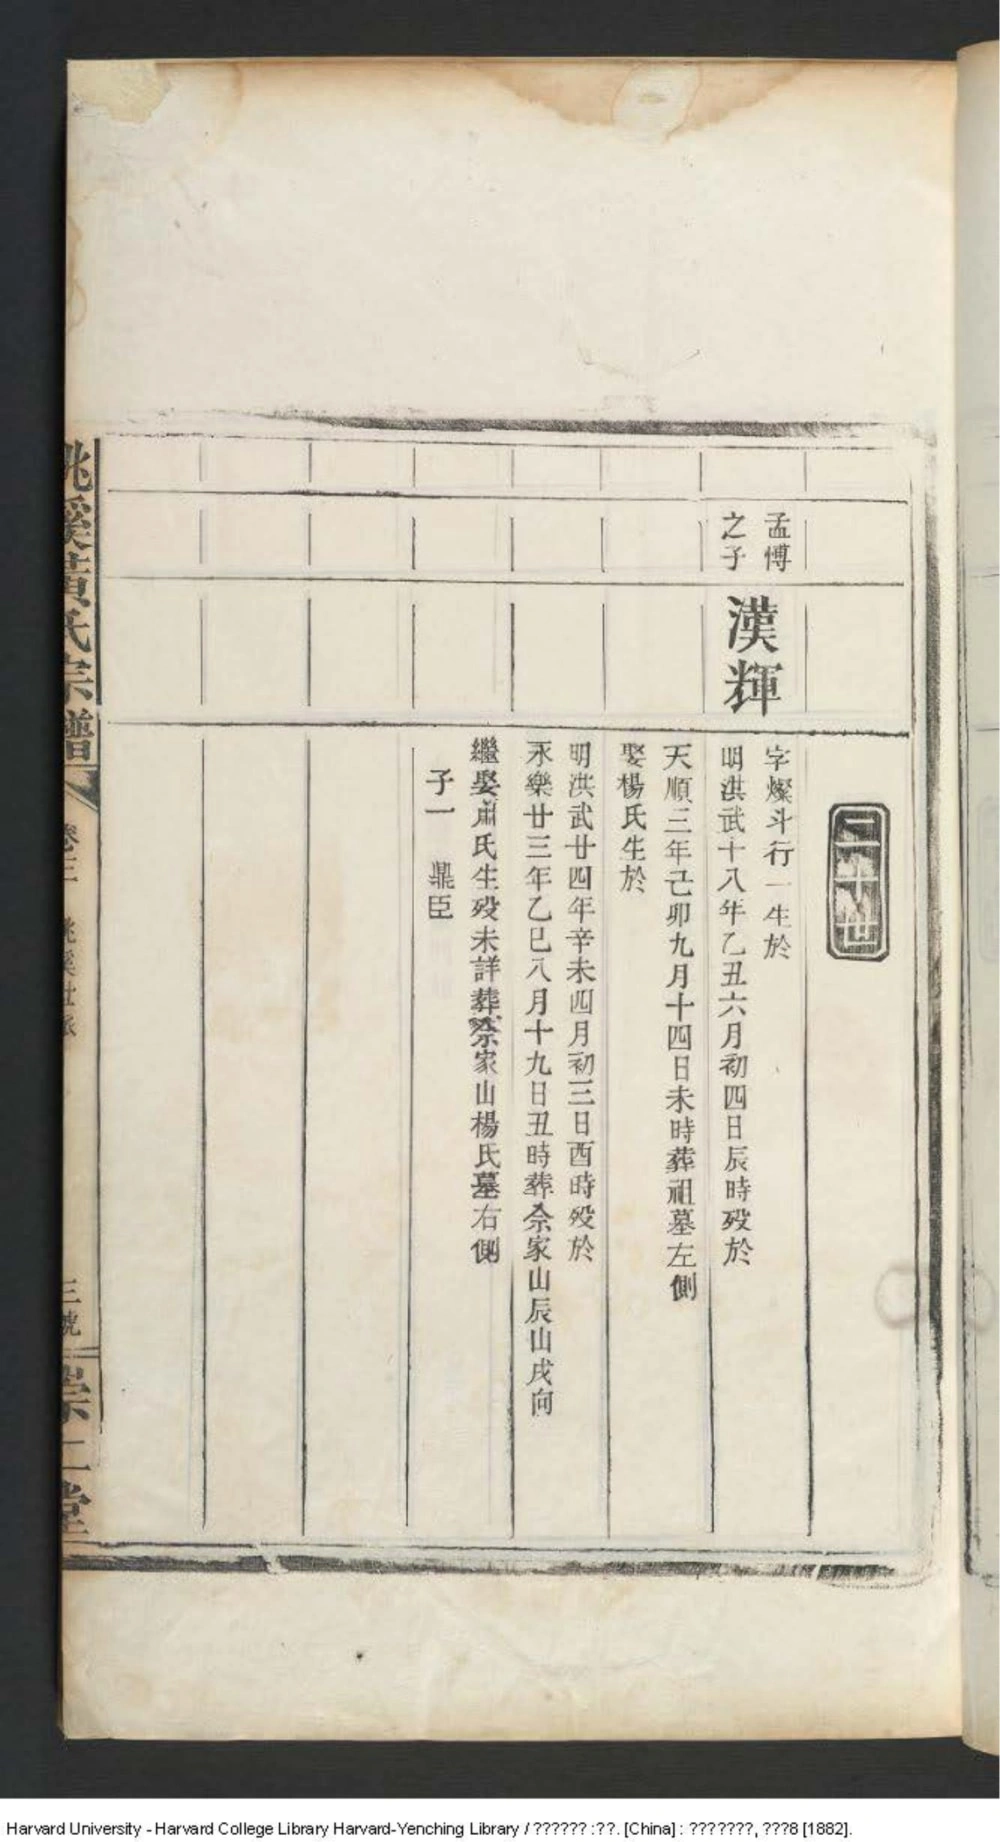 二十世
孟愽
之子
漢輝
字燦斗行一生於
明洪武十八年乙丑六月初四日辰時殁於
天順三年己卯九月十四日未時葬祖墓左側
娶楊氏生於
明洪武廿四年辛未四月初三日酉時殁於
永樂廿三年乙巳八月十九日丑時葬佘家山辰山戌向
繼娶肅氏生殁未詳葬佘家山楊氏墓右側
子一 鼎臣
溪黃氏宗譜
卷三
溪世派
三號
崇仁堂
Harvard University - Harvard College Library Harvard-Yenching Library / ?????? :??. [China] : ???????, ???8 [1882].